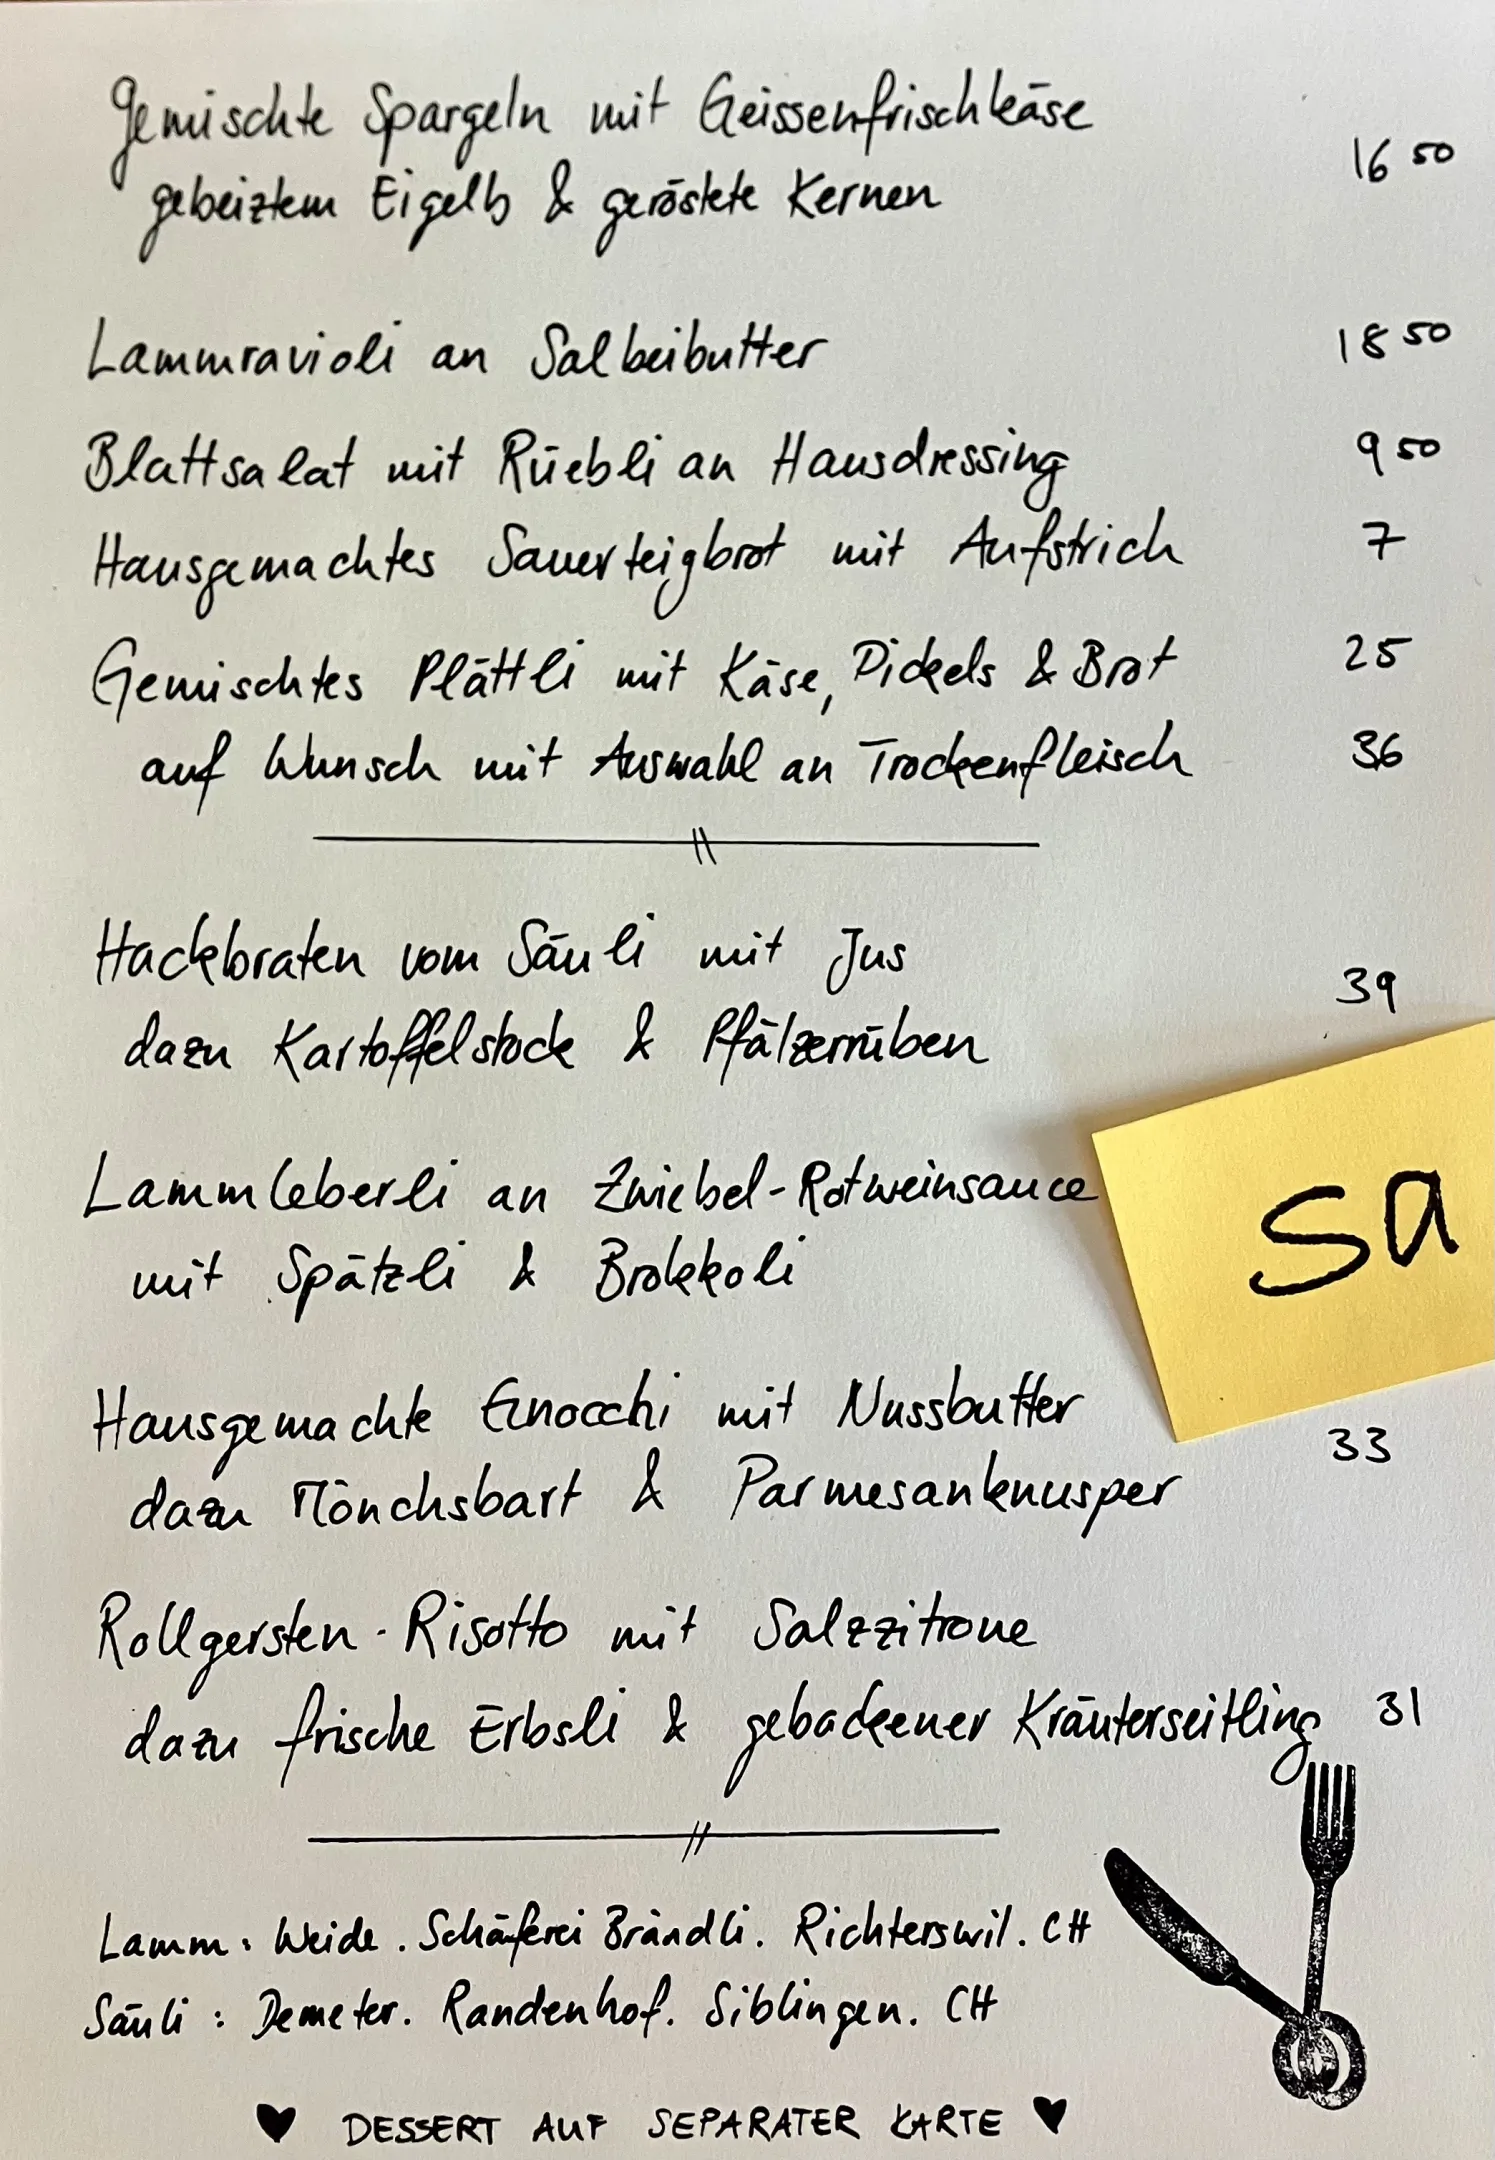 Gemischte Spargeln mit Geissenfrischkäse
gebeiztem Eigelb & geröstete Kernen 16 50
Lammravioli an Salbeibutter 18 50
Blattsalat mit Rüebli an Hausdressing 9 50
Hausgemachtes Sauerteigbrot mit Aufstrich 7
Gemischtes Plättli mit Käse, Pickels & Brot 25
auf Wunsch mit Auswahl an Trockenfleisch 36
Hackbraten vom Säuli mit Jus
dazu Kartoffelstock & Pfälzerrüben 39
Lammleberli an Zwiebel-Rotweinsauce
mit Spätzli & Brokkoli
Sa
Hausgemachte Gnocchi mit Nussbutter
dazu Mönchsbart & Parmesanknusper 33
Rollgersten-Risotto mit Salzzitrone
dazu frische Erbsli & gebackener Kräuterseitling 31
Lamm: Weide. Schäferei Brändli. Richterswil. CH
Säuli: Demeter. Randenhof. Siblingen. CH
♥ DESSERT AUF SEPARATER KARTE ♥